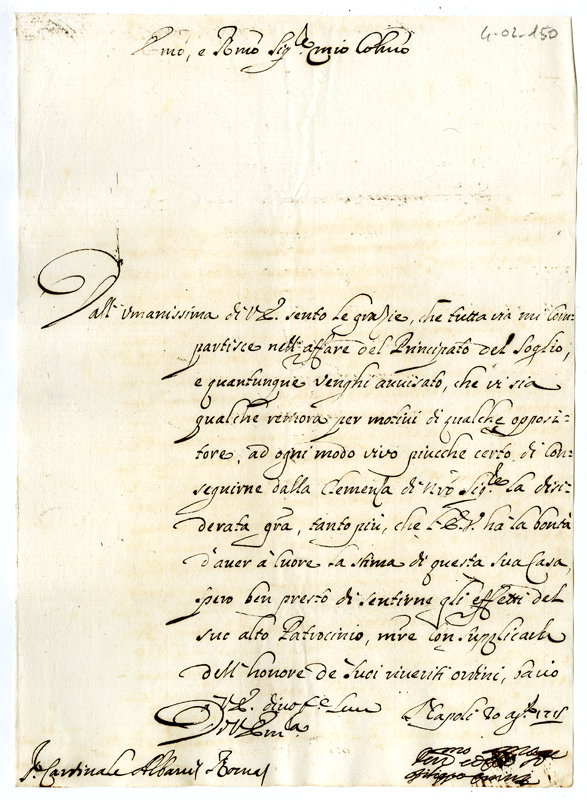 4-02-150
Emo, e Rmo Sig.re mio Colmo
Dall' umanissima di V.E. sento le grazie, che tutta via mi com:
partisce nell'affare del Principato del Soglio,
e quantunque venghi avvisato, che vi sia
qualche remora per motivi di qualche opposi:
tore, ad ogni modo vivo piucche certo di con:
seguirne dalla Clemenza di Nro Sig.re la desi:
derata gra, tanto più, che l'E.V. ha la bontà
d'aver à cuore la stima di questa sua Casa,
spero ben presto di sentirne gli effetti del
suo alto Patrocinio, mre con supplicarla
dell'honore de suoi riveriti ordini, bacio
à V.E.
Di V. Em.a
Napoli 20
Cardinale Albani Roma